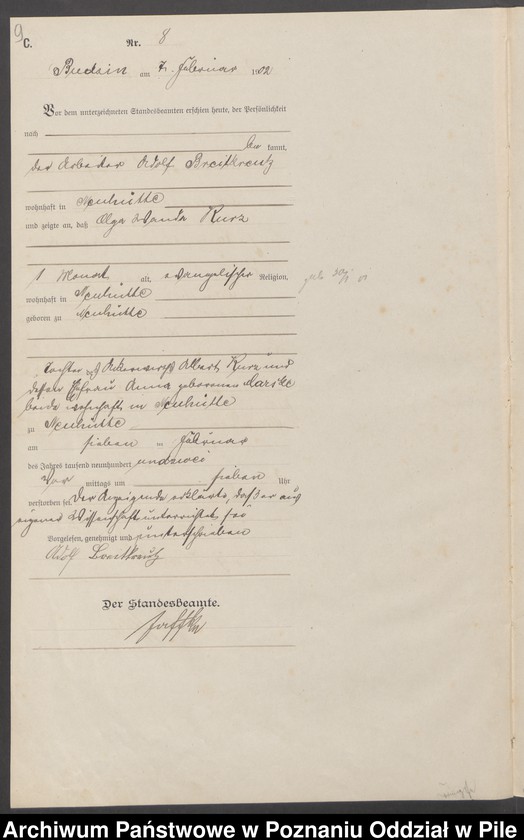 9
C.
Nr. 8
Budsin am 7. Februar 1902
Vor dem unterzeichneten Standesbeamten erschien heute, der Persönlichkeit
nach
be kannt,
der Arbeiter Adolf Breitkreutz
wohnhaft in Neuhütte
und zeigte an, daß Olga Wanda Kurz
1 Monat alt, evangelischer Religion,
wohnhaft in Neuhütte
geboren zu Neuhütte
Tochter des Ackerwirths Albert Kurz und
dessen Ehefrau Anna geborenen
beide wohnhaft in Neuhütte
zu Neuhütte
am sieben ten Februar
des Jahres tausend neunhundert und zwei
Vor mittags um sieben Uhr
verstorben sei. Der Anzeigende erklärte, daß er aus
eigener Wissenschaft unterrichtet sei
Vorgelesen, genehmigt und unterschrieben
Adolf Breitkreutz
Der Standesbeamte.
Archiwum Państwowe w Poznaniu Oddział w Pile